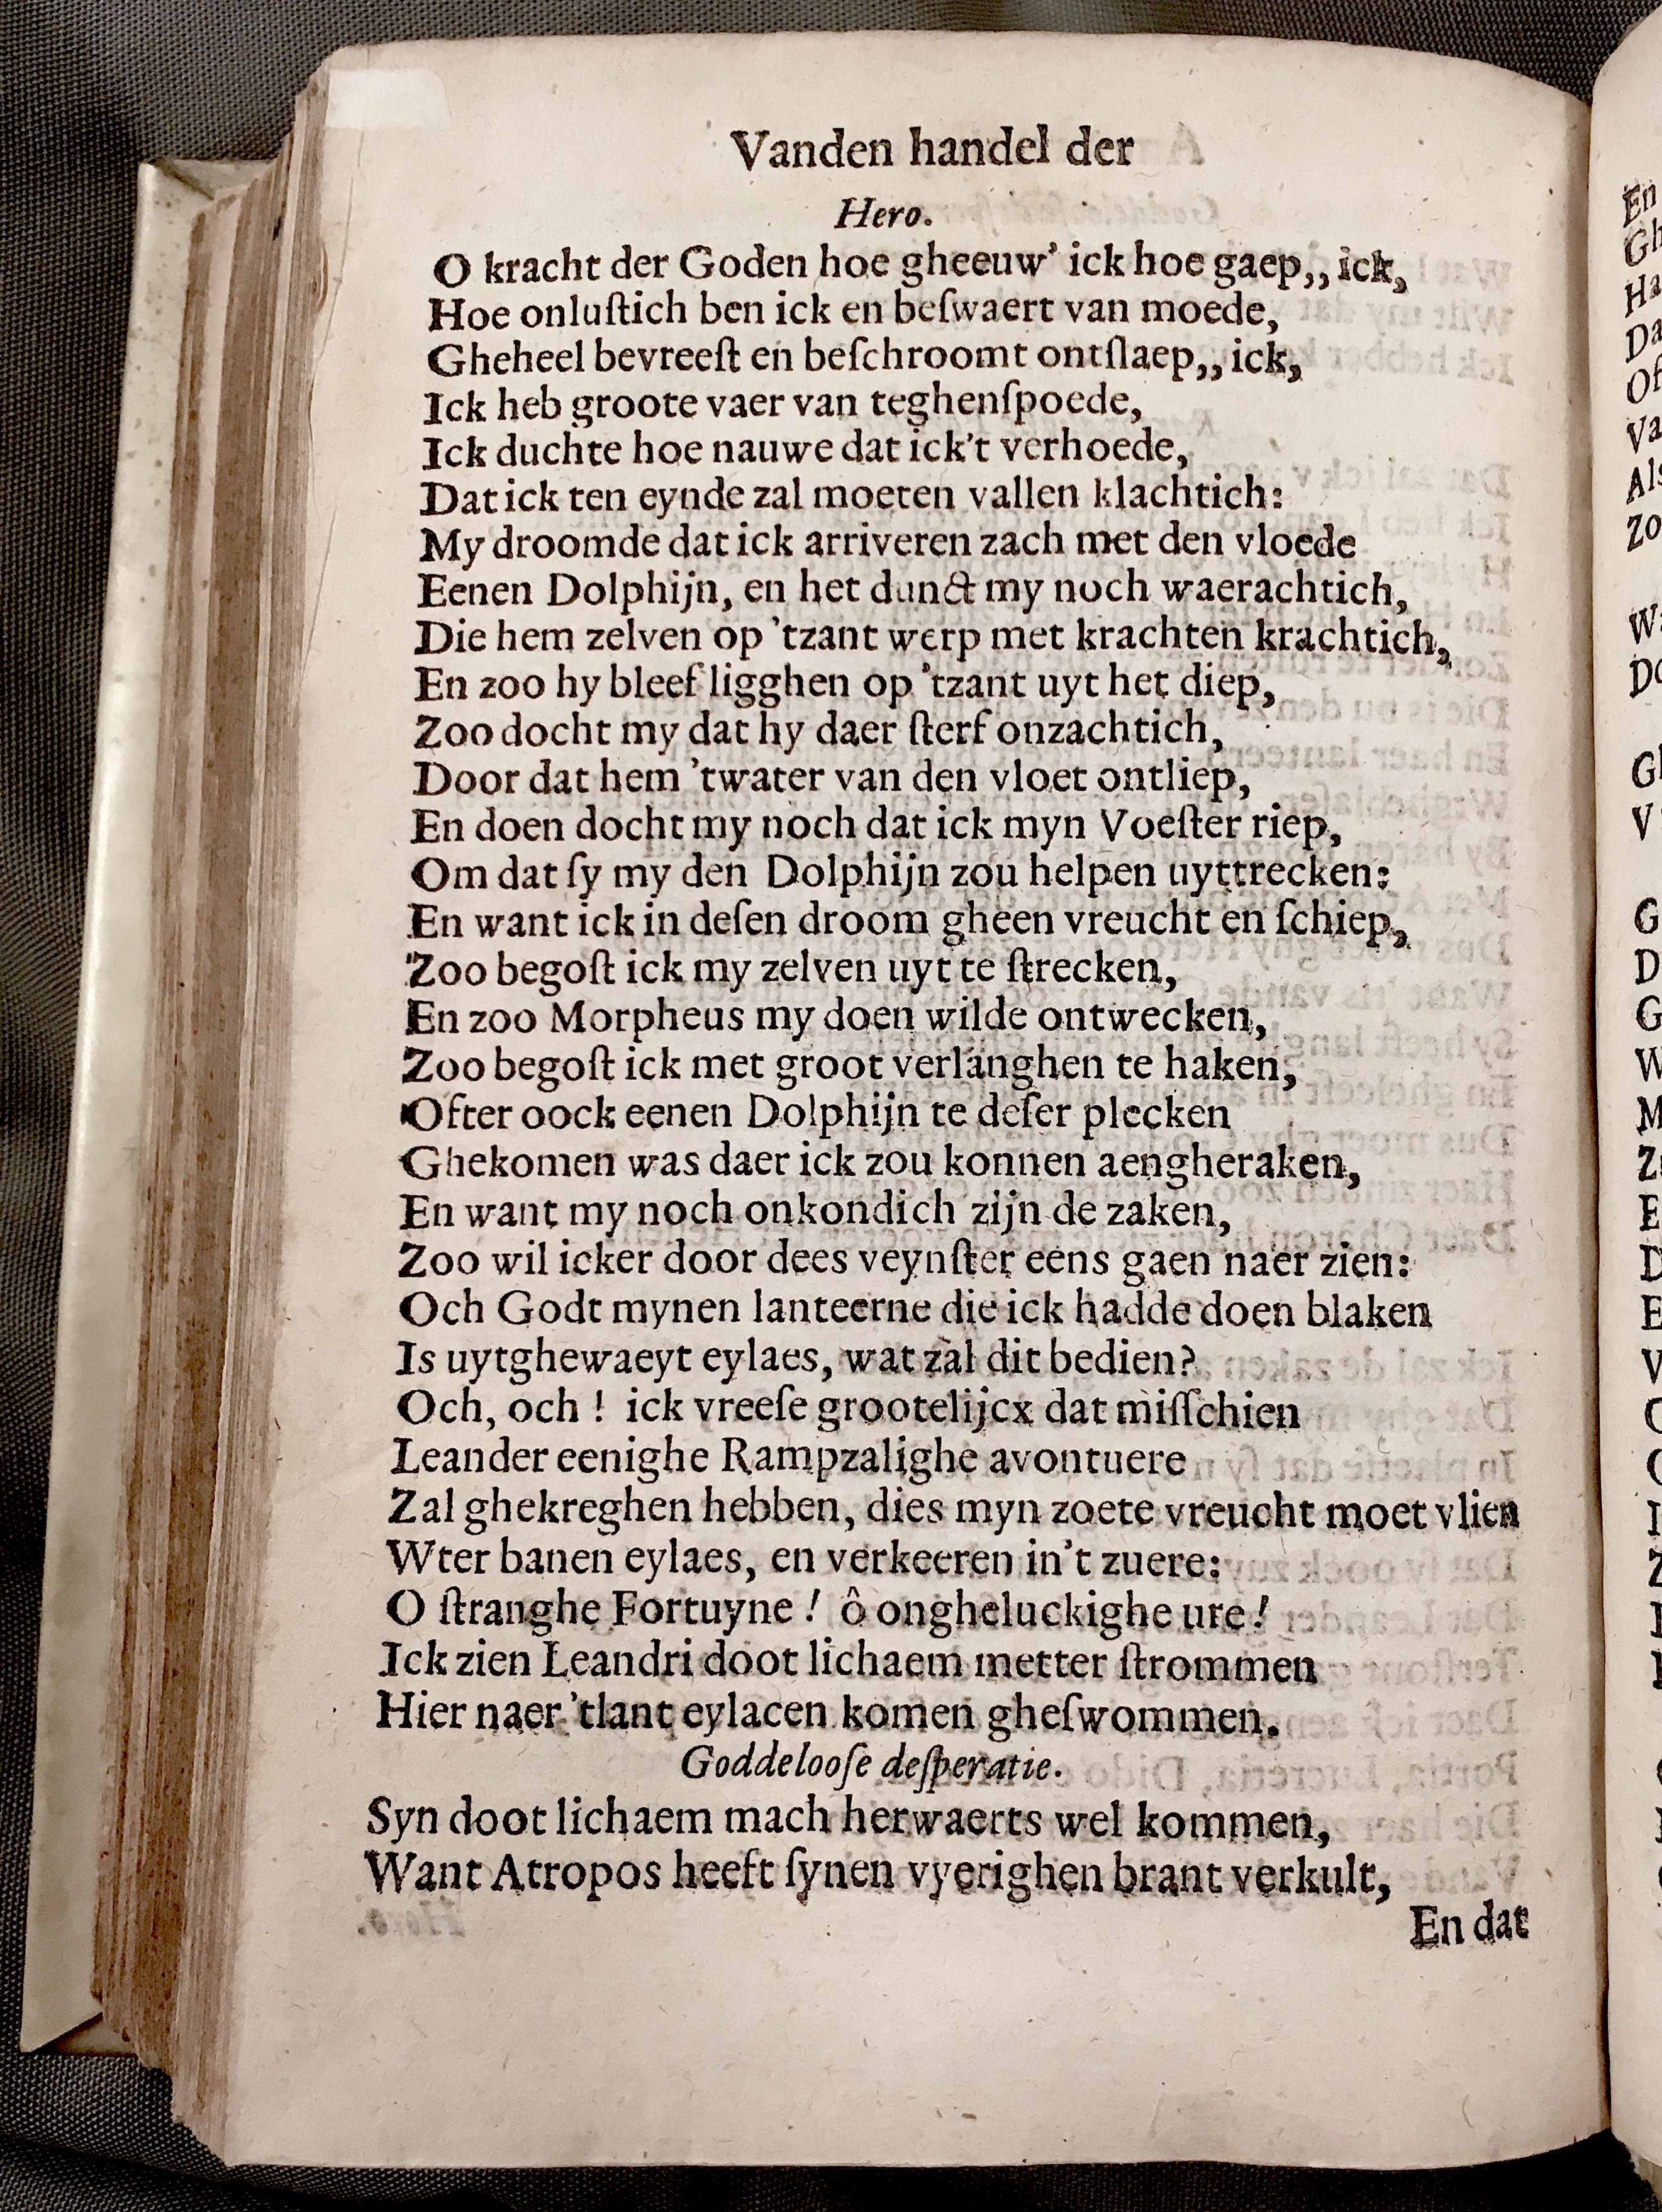 Vanden handel der
Hero.
O kracht der Goden hoe gheeuw' ick hoe gaep,, ick,
Hoe onluſtich ben ick en beſwaert van moede,
Gheheel bevreeſt en beſchroomt ontſlaep,, ick,
Ick heb groote vaer van teghenſpoede,
Ick duchte hoe nauwe dat ick't verhoede,
Dat ick ten eynde zal moeten vallen klachtich:
My droomde dat ick arriveren zach met den vloede
Eenen Dolphijn, en het dunct my noch waerachtich,
Die hem zelven op 'tzant werp met krachten krachtich,
En zoo hy bleef ligghen op 'tzant uyt het diep,
Zoo docht my dat hy daer ſterf onzachtich,
Door dat hem 'twater van den vloet ontliep,
En doen docht my noch dat ick myn Voeſter riep,
Om dat ſy my den Dolphijn zou helpen uyttrecken:
En want ick in deſen droom gheen vreucht en ſchiep,
Zoo begoſt ick my zelven uyt te ſtrecken,
En zoo Morpheus my doen wilde ontwecken,
Zoo begoſt ick met groot verlanghen te haken,
Ofter oock eenen Dolphijn te deſer plecken
Ghekomen was daer ick zou konnen aengheraken,
En want my noch onkondich zijn de zaken,
Zoo wil icker door dees veynſter eens gaen naer zien:
Och Godt mynen lanteerne die ick hadde doen blaken
Is uytghewaeyt eylaes, wat zal dit bedien?
Och, och ! ick vreeſe grootelijcx dat miſſchien
Leander eenighe Rampzalighe avontuere
Zal ghekreghen hebben, dies myn zoete vreucht moet vlien
Wter banen eylaes, en verkeeren in't zuere:
O ſtranghe Fortuyne ! ô ongheluckighe ure !
Ick zien Leandri doot lichaem metter ſtrommen
Hier naer 'tlant eylacen komen gheſwommen.
Goddelooſe deſperatie.
Syn doot lichaem mach herwaerts wel kommen,
Want Atropos heeft ſynen vyerighen brant verkult,
En dat